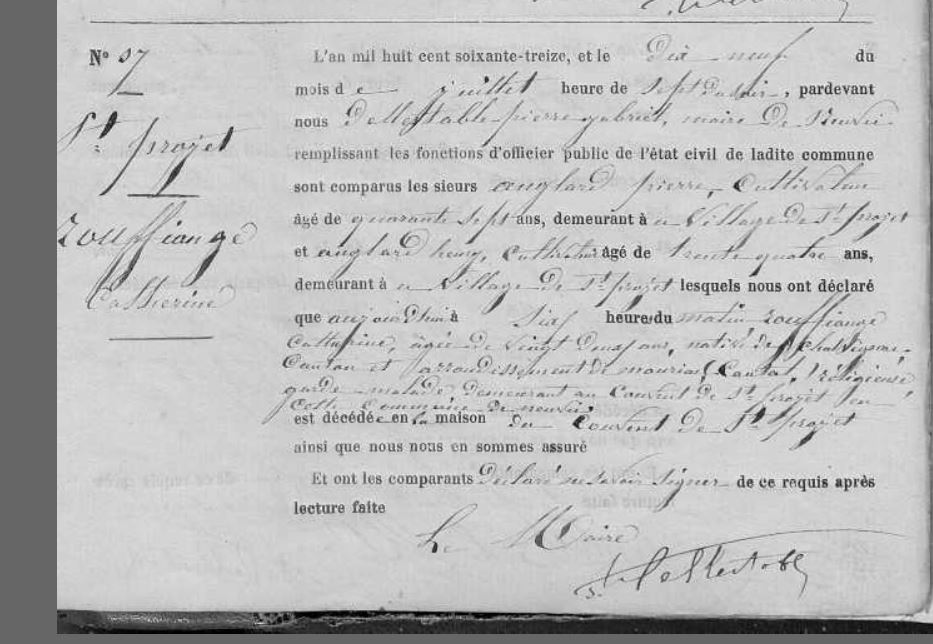 N° 37
St projet
Zouffiange
Catherine
L'an mil huit cent soixante-treize, et le Dix neuf du
mois de juillet heure de Sept du soir, pardevant
nous Dellestable pierre gabriel, maire De Neuvic
remplissant les fonctions d'officier public de l'état civil de ladite commune
sont comparus les sieurs anglard pierre, Cultivateur
âgé de quarante Sept ans, demeurant à u Village De St projet
et anglard henry, Cultivateur âgé de trente quatre ans,
demeurant à u Village De St projet lesquels nous ont déclaré
que aujourd'hui à Six heure du matin Zouffiange
Catherine, agée de Vingt Deux ans, native de
Canton et arrondissement de mauriac (Cantal, réligieuse
garde-malade, demeurant au Couvent De St projet en
Cette Commune De neuvic
est décédée en la maison du Couvent De St projet
ainsi que nous nous en sommes assuré
Et ont les comparants Déclaré ne Savoir Signer de ce requis après
lecture faite
Le Maire
Dellestable